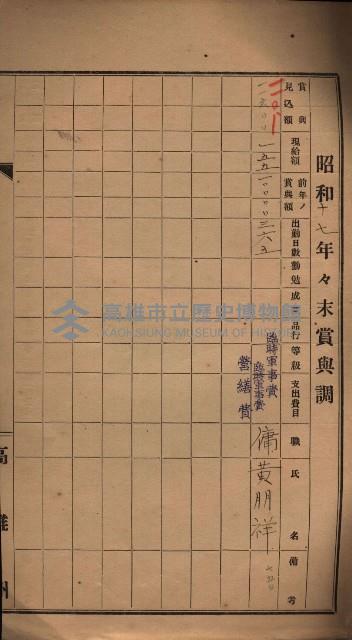 昭和十七年々末賞與調
賞與見込額
現給額
前年ノ賞與額
出勤日數
勤勉
成績
品行
等級
支出費目
職
氏名
備考
臨時軍事費
臨時軍事費
營繕費
傭
黃朋祥
高雄州
高雄市立歷史博物館
KAOHSIUNG MUSEUM OF HISTORY